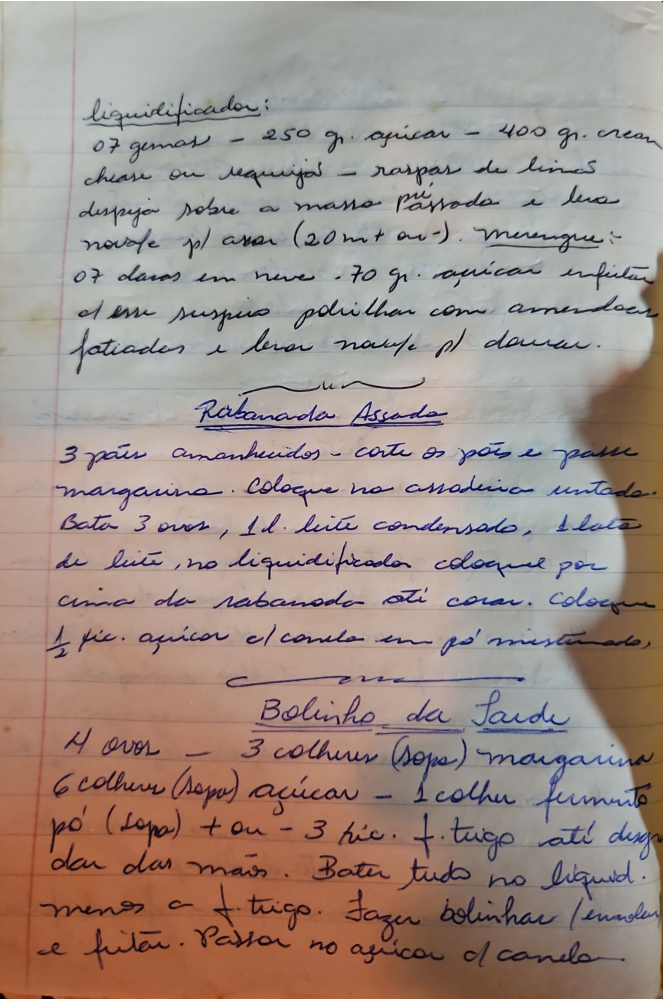 liquidificador:
07 gemas - 250 gr. açúcar - 400 gr. cream
chease ou requijá - raspas de limãs
despeja sobre a massa pré assada e leva
novā/e p/ assar (20 m + ou -). merengue:-
07 claras em neve - 70 gr. açúcar enfeitar
c/ esse suspiro polvilhar com amendoas
fatiadas e levar nova/e p/ dourar.
Rabanada Assada
3 pães amanhecidos - corte os pães e passe
margarina. Coloque na assadeira untada.
Bata 3 ovos, 1 l. leite condensado, 1 lata
de leite, no liquidificador coloque por
cima da rabanada até corar. Coloque
1/2 xic. açúcar c/ canela em pó misturado,
Bolinho da Tarde
4 ovos - 3 colheres (sopa) margarina
6 colheres (sopa) açúcar - 1 colher fermento
pó (sopa) + ou - 3 xic. f. trigo até desgru
dar das mãos. Bater tudo no liquid.
menos a f. trigo. Fazer bolinhas / enrolar
e fritar. Passar no açúcar c/ canela